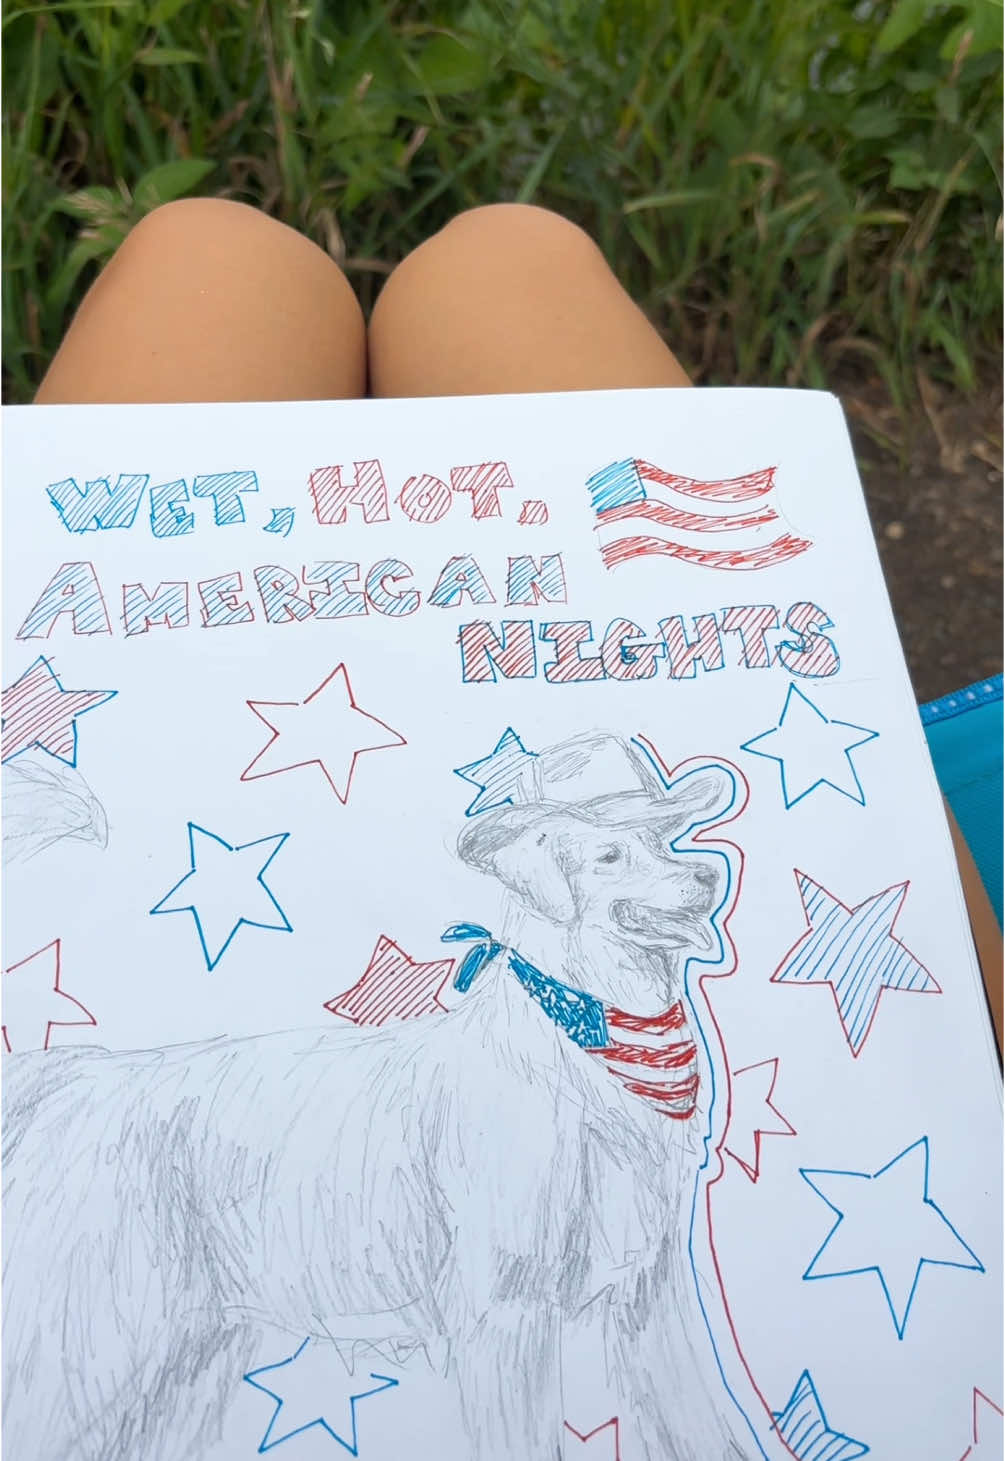 WET, HOT.
AMERICAN
NIGHTS